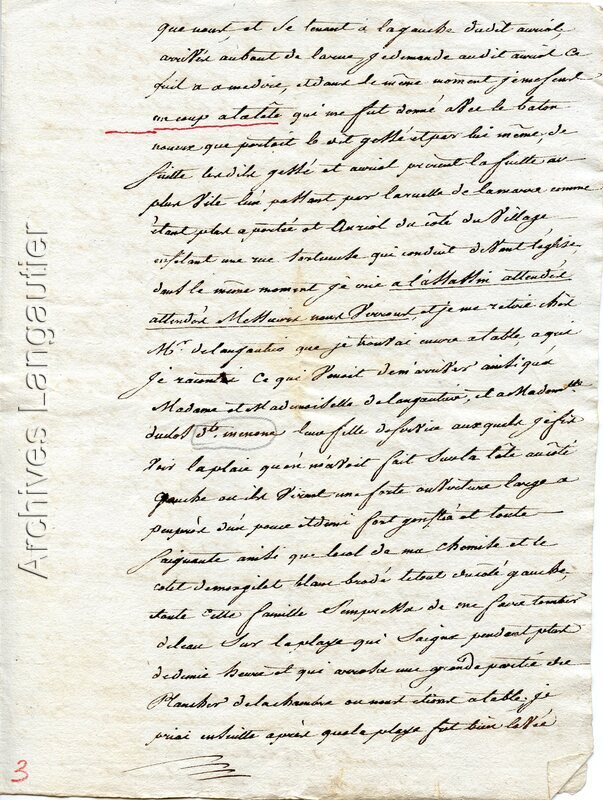 que nous, et se tenant à la gauche dudit auriol
arrivés au bout de la rue, je demande audit auriol ce
quil a a me dire, et dans le même moment je me sens
un coup a la tête qui me fut donné avec le baton
noueux que portoit le dit gessé et par lui même, de
suitte lesdits gessé et auriol prirent la fuitte au
plus vite lun passant par la ruelle de lamarre comme
étant plus a portée et auriol du côté du village
enfilant une rue tortueuse qui conduit devant léglise,
dans le même moment je crie a l'assassin attendés
attendés Messieurs nous verrons et je me retire chés
Mr. de langautier que je trouvai encore a table a qui
je racontai ce qui venoit dem'arriver ainsi qua
Madame et Mademoiselle de langautier, et a Madem.lle
duclos dte. menone leur fille de service auxquels je fis
voir la plaie qu'on m'avoit fait sur la tête au côté
gauche ou ils virent une forte ouverture large a
peuprès d'un pouce et demi fort gonflée et toute
saignante ainsi que le col de ma chemise et le
colet demongilet blanc brodé le tout du côté gauche,
toute cette famille s'empressa de me faire tomber
deleau sur la playe qui saigna pendant plus
dedemie heure et qui arrosa une grande partie du
plancher de la chambre ou nous étions a table, je
priai ensuitte après que la playe fut bien lavée
3
Archives Langautier